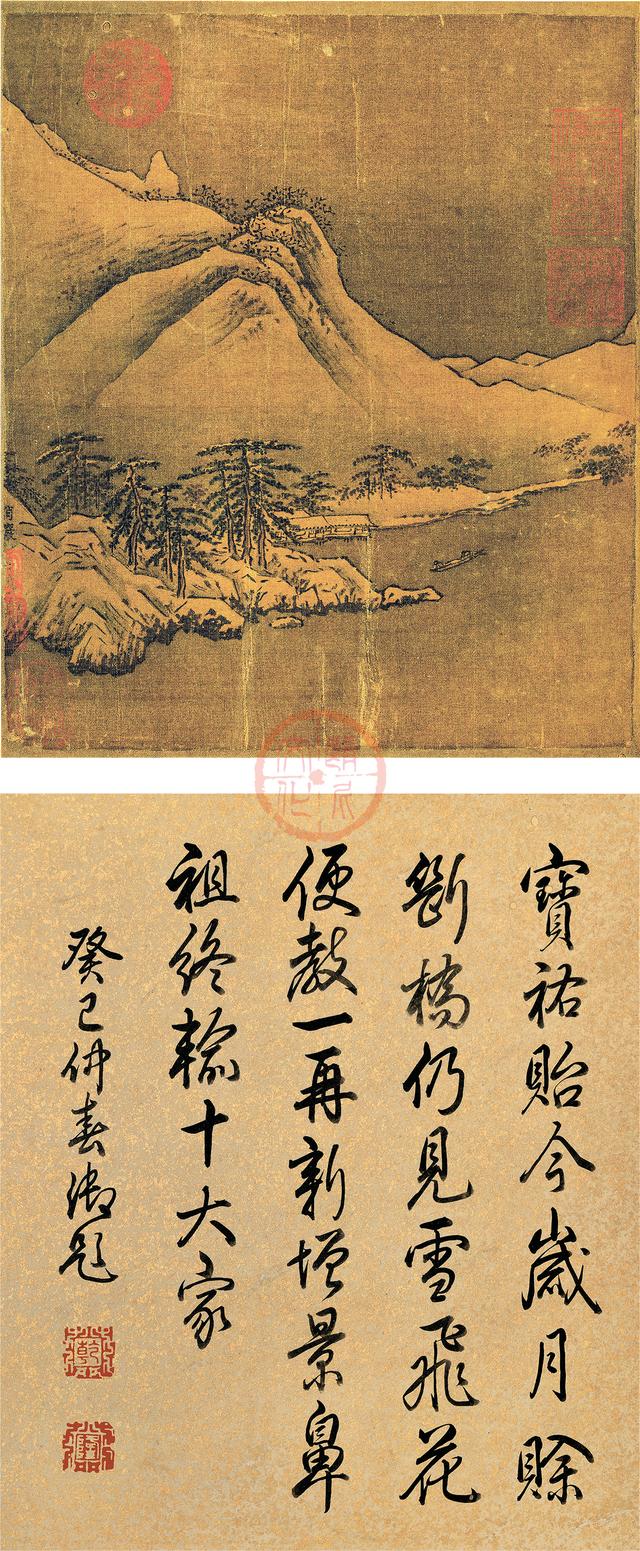 肖巖
寶祐貽今歲月賒
斷橋仍見雪飛花
便教一再新增景鼻
祖終輸十大家
癸巳仲春御題